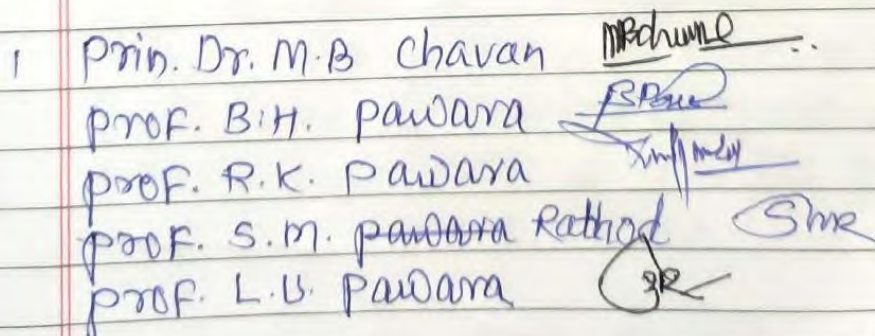 1 Prin. Dr. M.B Chavan
Prof. B.H. Pawara
Prof. R.K. Pawara
Prof. S.M. Pawara Rathod
Prof. L.U. Pawara